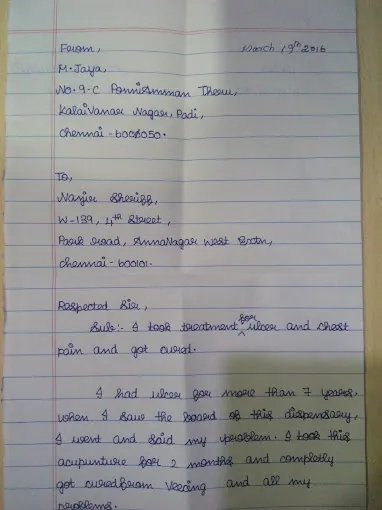 From,
March 19th 2016
M. Jaya,
No. 9-C Ponniamman Theru,
Kalaivanar Nagar, Padi,
Chennai - 6000050.
To,
Nazir Sheriff,
W-139, 4th Street,
Park road, AnnaNagar West Extn,
Chennai - 600101.
Respected Sir,
Sub:- I took treatment for ulcer and chest
pain and got cured.
I had ulcer for more than 7 years.
when I saw the board of this dispensary,
I went and said my problem. I took this
acupunture for 2 months and completly
got cured from and all my
problems.